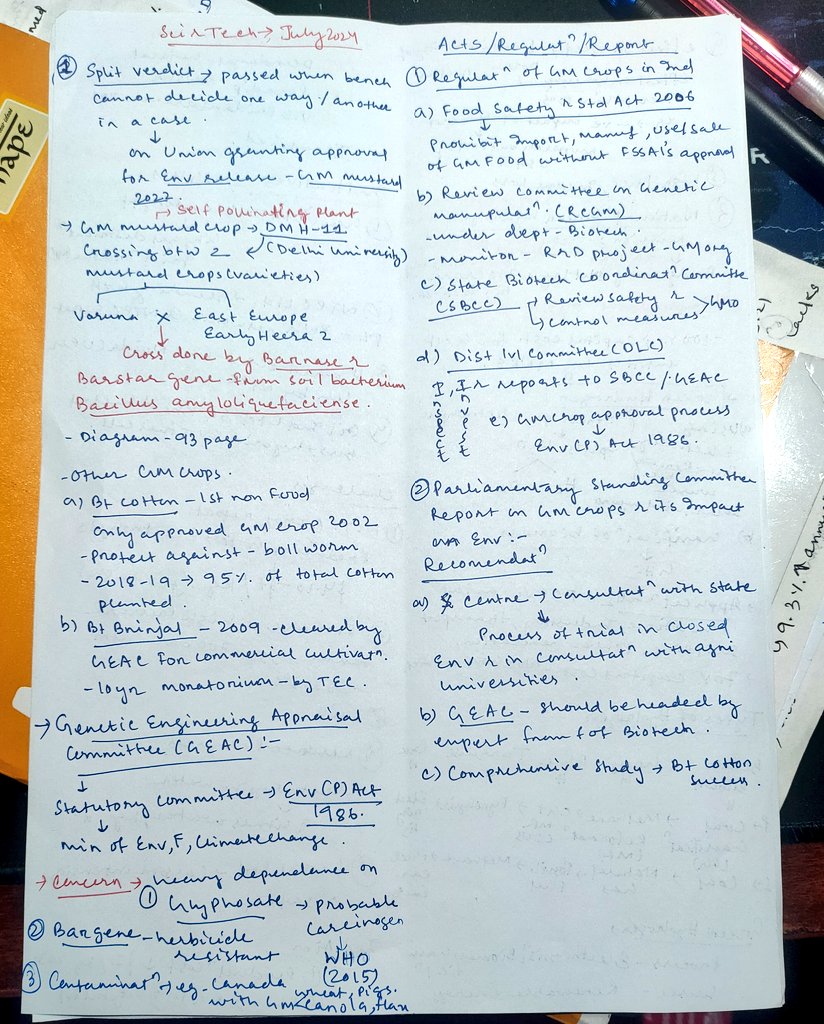 Sci & Tech → July 2024
① Split verdict → passed when bench
cannot decide one way / another
in a case.
↓
on Union granting approval
for Env release - GM mustard
2022.
→ Self Pollinating Plant
→ GM mustard crop → DMH-11
(Delhi University)
Crossing btw 2
mustard crops (varieties)
Varuna × East Europe
Early Heera 2
↓
Cross done by Barnase &
Barstar gene - from soil bacterium
Bacillus amyloliquefaciense.
- Diagram - 93 page
- Other GM crops.
a) Bt cotton - 1st non food
only approved GM crop 2002
- Protect against - boll worm
- 2018-19 → 95% of total cotton
planted.
b) Bt Brinjal - 2009 - cleared by
GEAC for commercial cultivatⁿ.
- 10yr moratorium - by TEC.
→ Genetic Engineering Appraisal
Committee (GEAC) :-
↓
Statutory committee → Env (P) Act
1986.
↓
Min of Env, F, Climate Change.
→ Concern → heavy dependance on
① Glyphosate → probable
carcinogen
↓
WHO
(2015)
② Bar gene - herbicide
resistant
③ Contaminatⁿ → eg. Canada wheat, pigs.
with GM canola, flax
Acts / Regulatⁿ / Report
① Regulatⁿ of GM crops in Ind
a) Food Safety & Std Act 2006
↓
Prohibit Import, manuf, use/sale
of GM Food without FSSAI's approval
b) Review committee on Genetic
manupulatⁿ. (RCGM)
- under dept - Biotech.
- monitor - R&D project - GM org
c) State Biotech Coordinatⁿ Committe
(SBCC) → Review safety &
→ Control measures > GMO
d) Dist lvl Committee (DLC)
Inspect, Invest & reports to SBCC / GEAC
e) GM crop approval process
↓
Env (P) Act 1986.
② Parliamentary Standing Committee
Report on GM crops & its Impact
on Env :-
Recomendatⁿ
a) Centre → Consultatⁿ with State
↓
Process of trial in closed
Env & in consultatⁿ with agri
universities.
b) GEAC - should be headed by
expert from f of Biotech.
c) Comprehensive Study → Bt Cotton
success.